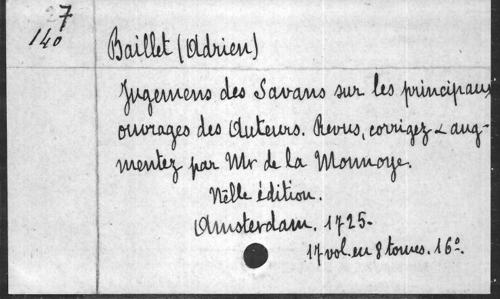 7
140
Baillet (Adrien)
Jugemens des Savans sur les principaux
ouvrages des Auteurs. Revus, corrigez & aug-
mentez par Mr de la Monnoye.
Nelle édition.
Amsterdam. 1725-
17 vol. en 8 tomes. 16°.